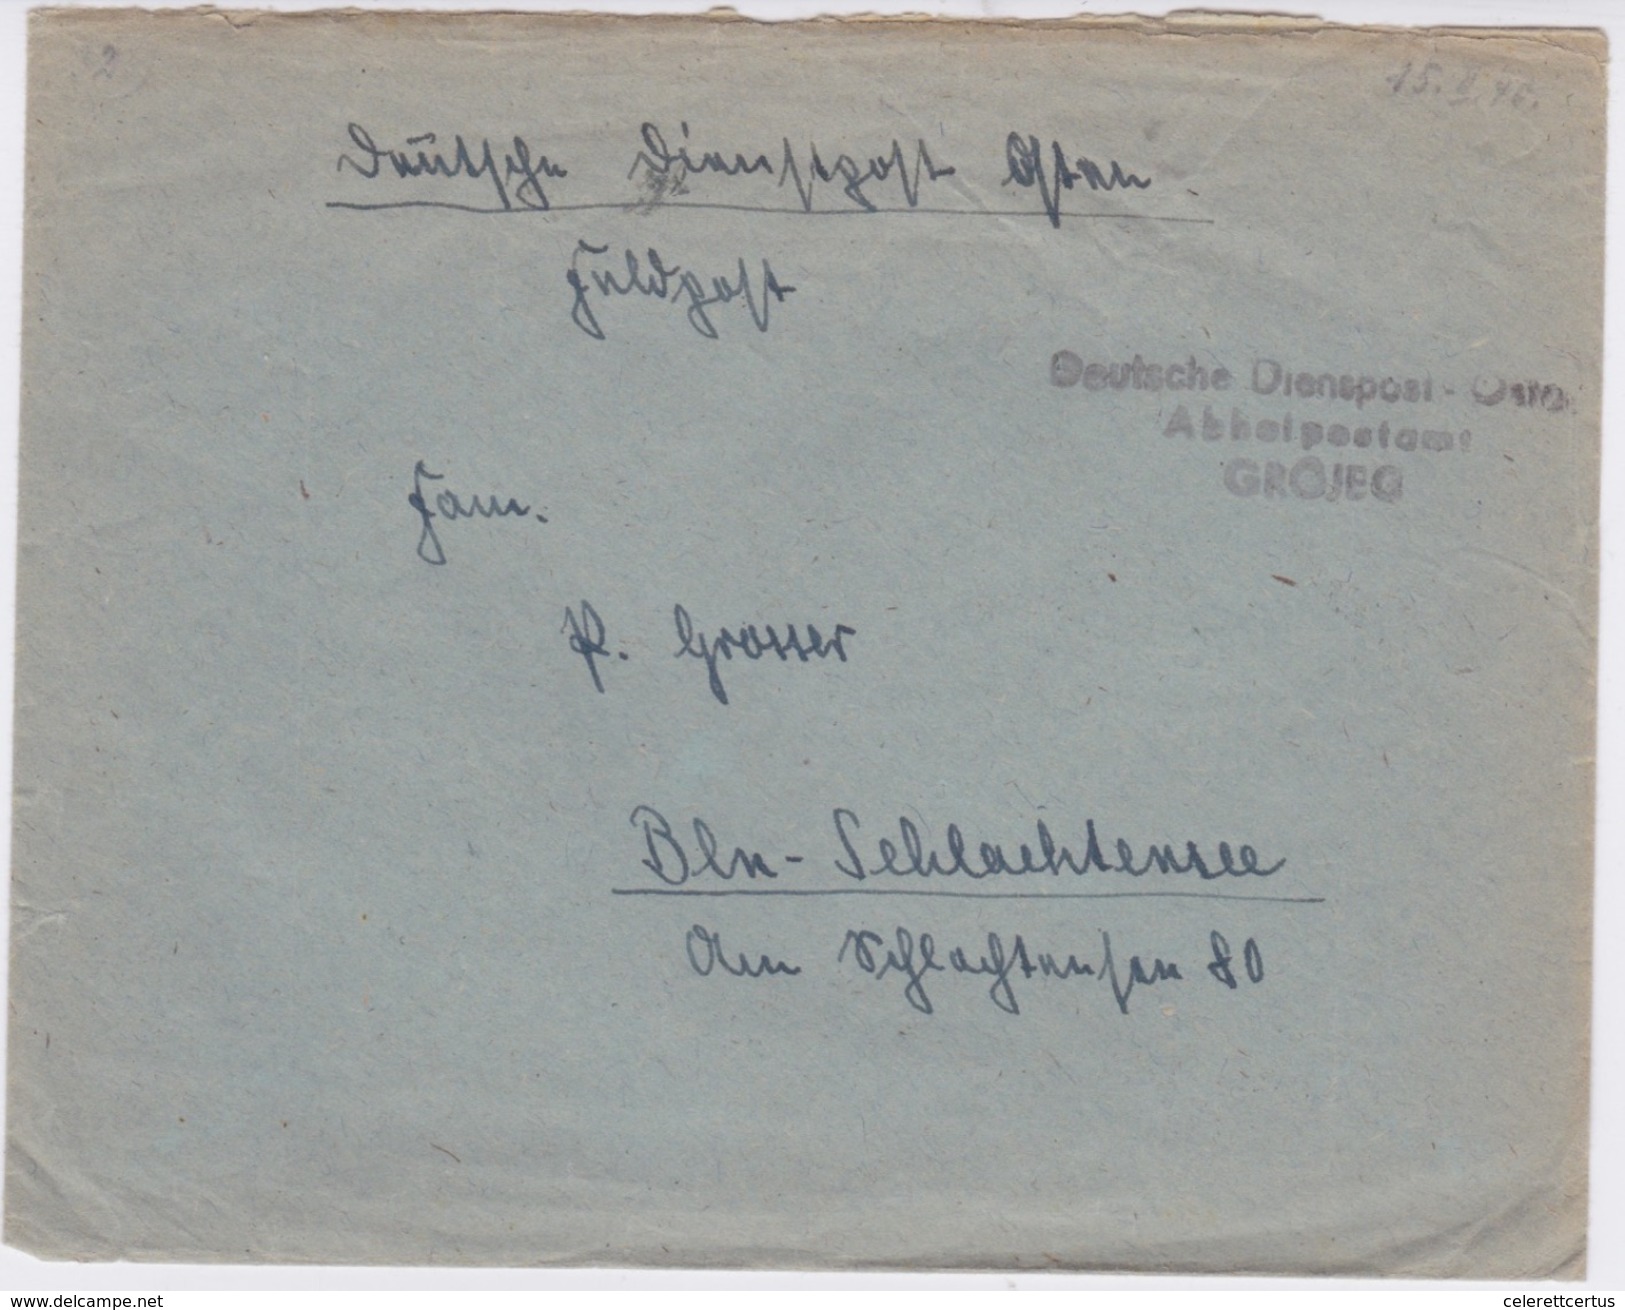 2
15. II. 40.
Deutsche Dienstpost Osten
Feldpost
Deutsche Dienspost - Osten
Abholpostamt
GROJEC
Fam.
P. Grosser
Bln - Schlachtensee
Am Schlachtensee 80
www.delcampe.net
celerettcertus